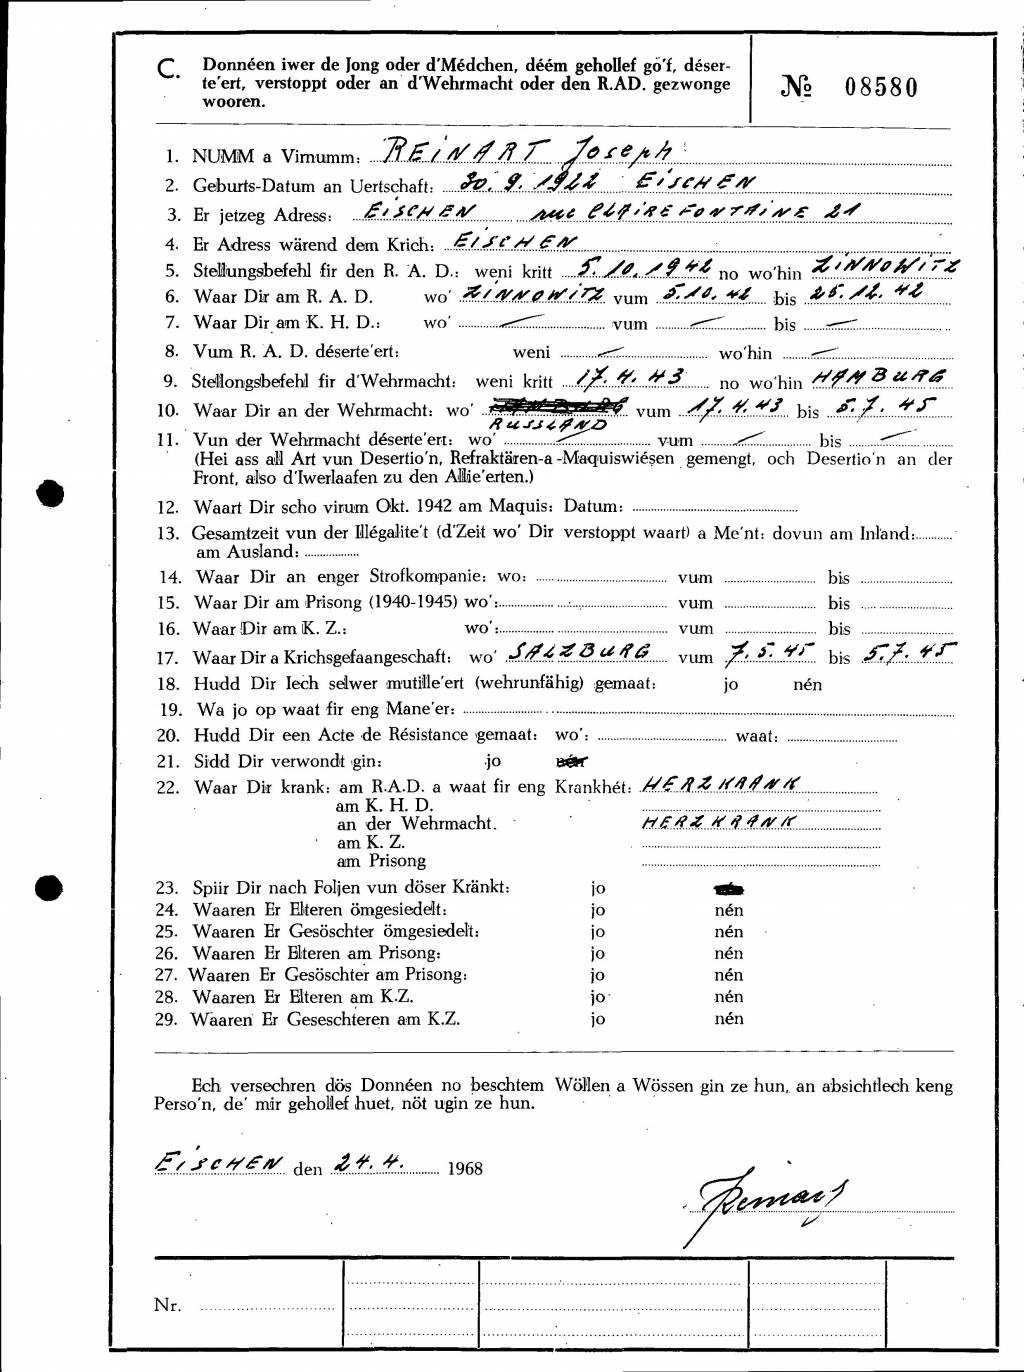 C. Donnéen iwer de Jong oder d'Médchen, déém gehollef gö'f, déser-
te'ert, verstoppt oder an d'Wehrmacht oder den R.AD. gezwonge
wooren.
№ 08580
1. NUMM a Virnumm: REINART Joseph
2. Geburts-Datum an Uertschaft: 30. 9. 1922 EISCHEN
3. Er jetzeg Adress: EISCHEN rue CLAIREFONTAINE 21
4. Er Adress wärend dem Krich: EISCHEN
5. Stellungsbefehl fir den R. A. D.: weni kritt 5. 10. 1942 no wo'hin ZINNOWITZ
6. Waar Dir am R. A. D. wo' ZINNOWITZ vum 5.10. 42 bis 25. 12. 42
7. Waar Dir am K. H. D.: wo' — vum — bis —
8. Vum R. A. D. déserte'ert: weni — wo'hin —
9. Stellongsbefehl fir d'Wehrmacht: weni kritt 17. 4. 43 no wo'hin HAMBURG
10. Waar Dir an der Wehrmacht: wo' vum 17. 4. 43 bis 5. 7. 45
RUSSLAND
11. Vun der Wehrmacht déserte'ert: wo' — vum — bis —
(Hei ass all Art vun Desertio'n, Refraktären-a-Maquiswiésen gemengt, och Desertio'n an der
Front, also d'Iwerlaafen zu den Allie'erten.)
12. Waart Dir scho virum Okt. 1942 am Maquis: Datum:
13. Gesamtzeit vun der Illégalite't (d'Zeit wo' Dir verstoppt waart) a Me'nt: dovun am Inland:
am Ausland:
14. Waar Dir an enger Strofkompanie: wo: vum bis
15. Waar Dir am Prisong (1940-1945) wo': vum bis
16. Waar Dir am K. Z.: wo': vum bis
17. Waar Dir a Krichsgefaangeschaft: wo' SALZBURG vum 7. 5. 45 bis 5. 7. 45
18. Hudd Dir Iech selwer mutille'ert (wehrunfähig) gemaat: jo nén
19. Wa jo op waat fir eng Mane'er:
20. Hudd Dir een Acte de Résistance gemaat: wo': waat:
21. Sidd Dir verwondt gin: jo nén
22. Waar Dir krank: am R.A.D. a waat fir eng Krankhét: HERZKRANK
am K. H. D.
an der Wehrmacht. HERZKRANK
am K. Z.
am Prisong
23. Spiir Dir nach Foljen vun döser Kränkt: jo
24. Waaren Er Elteren ömgesiedelt: jo nén
25. Waaren Er Gesöschter ömgesiedelt: jo nén
26. Waaren Er Elteren am Prisong: jo nén
27. Waaren Er Gesöschter am Prisong: jo nén
28. Waaren Er Elteren am K.Z. jo nén
29. Waaren Er Geseschteren am K.Z. jo nén
Ech versechren dös Donnéen no beschtem Wöllen a Wössen gin ze hun, an absichtlech keng
Perso'n, de' mir gehollef huet, nöt ugin ze hun.
EISCHEN den 24. 4. 1968
Reinart
Nr.